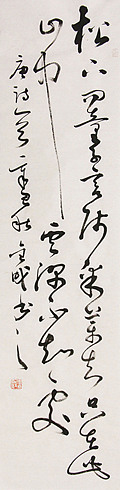 松下问童子言师采药去只在此
山中云深不知处
唐诗一首辛丑秋金成书之